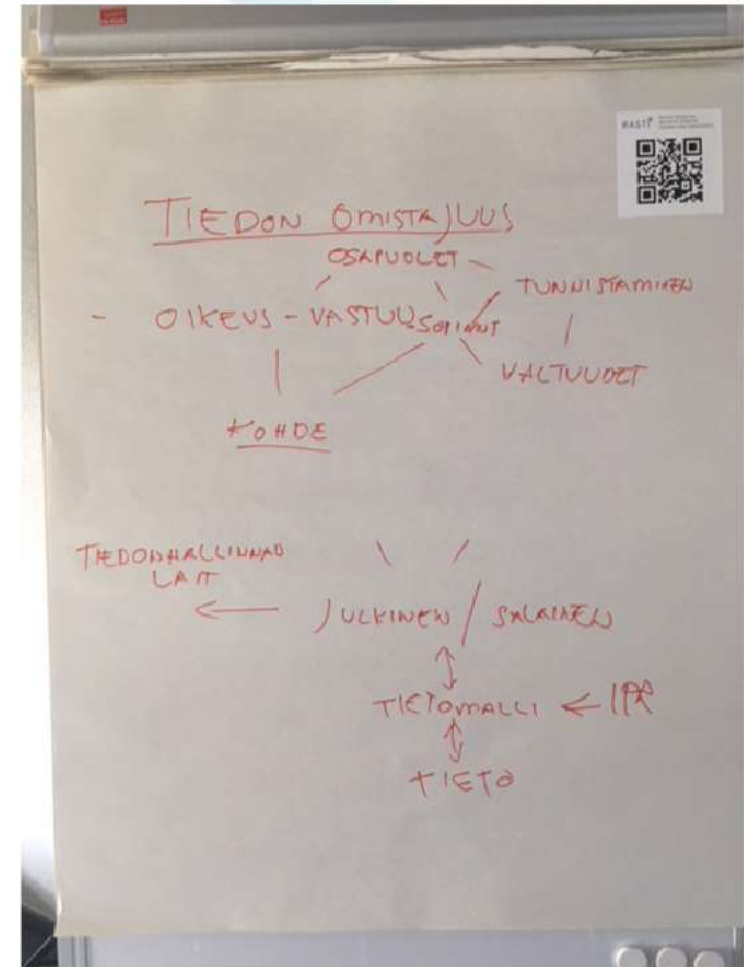 TIEDON OMISTAJUUS
OSAPUOLET
TUNNISTAMINEN
- OIKEUS - VASTUU - SOPIMUS
VALTUUDET
KOHDE
TIEDONHALLINNAN
LAIT
← JULKINEN / SALAINEN
TIETOMALLI ← IPR
TIETO